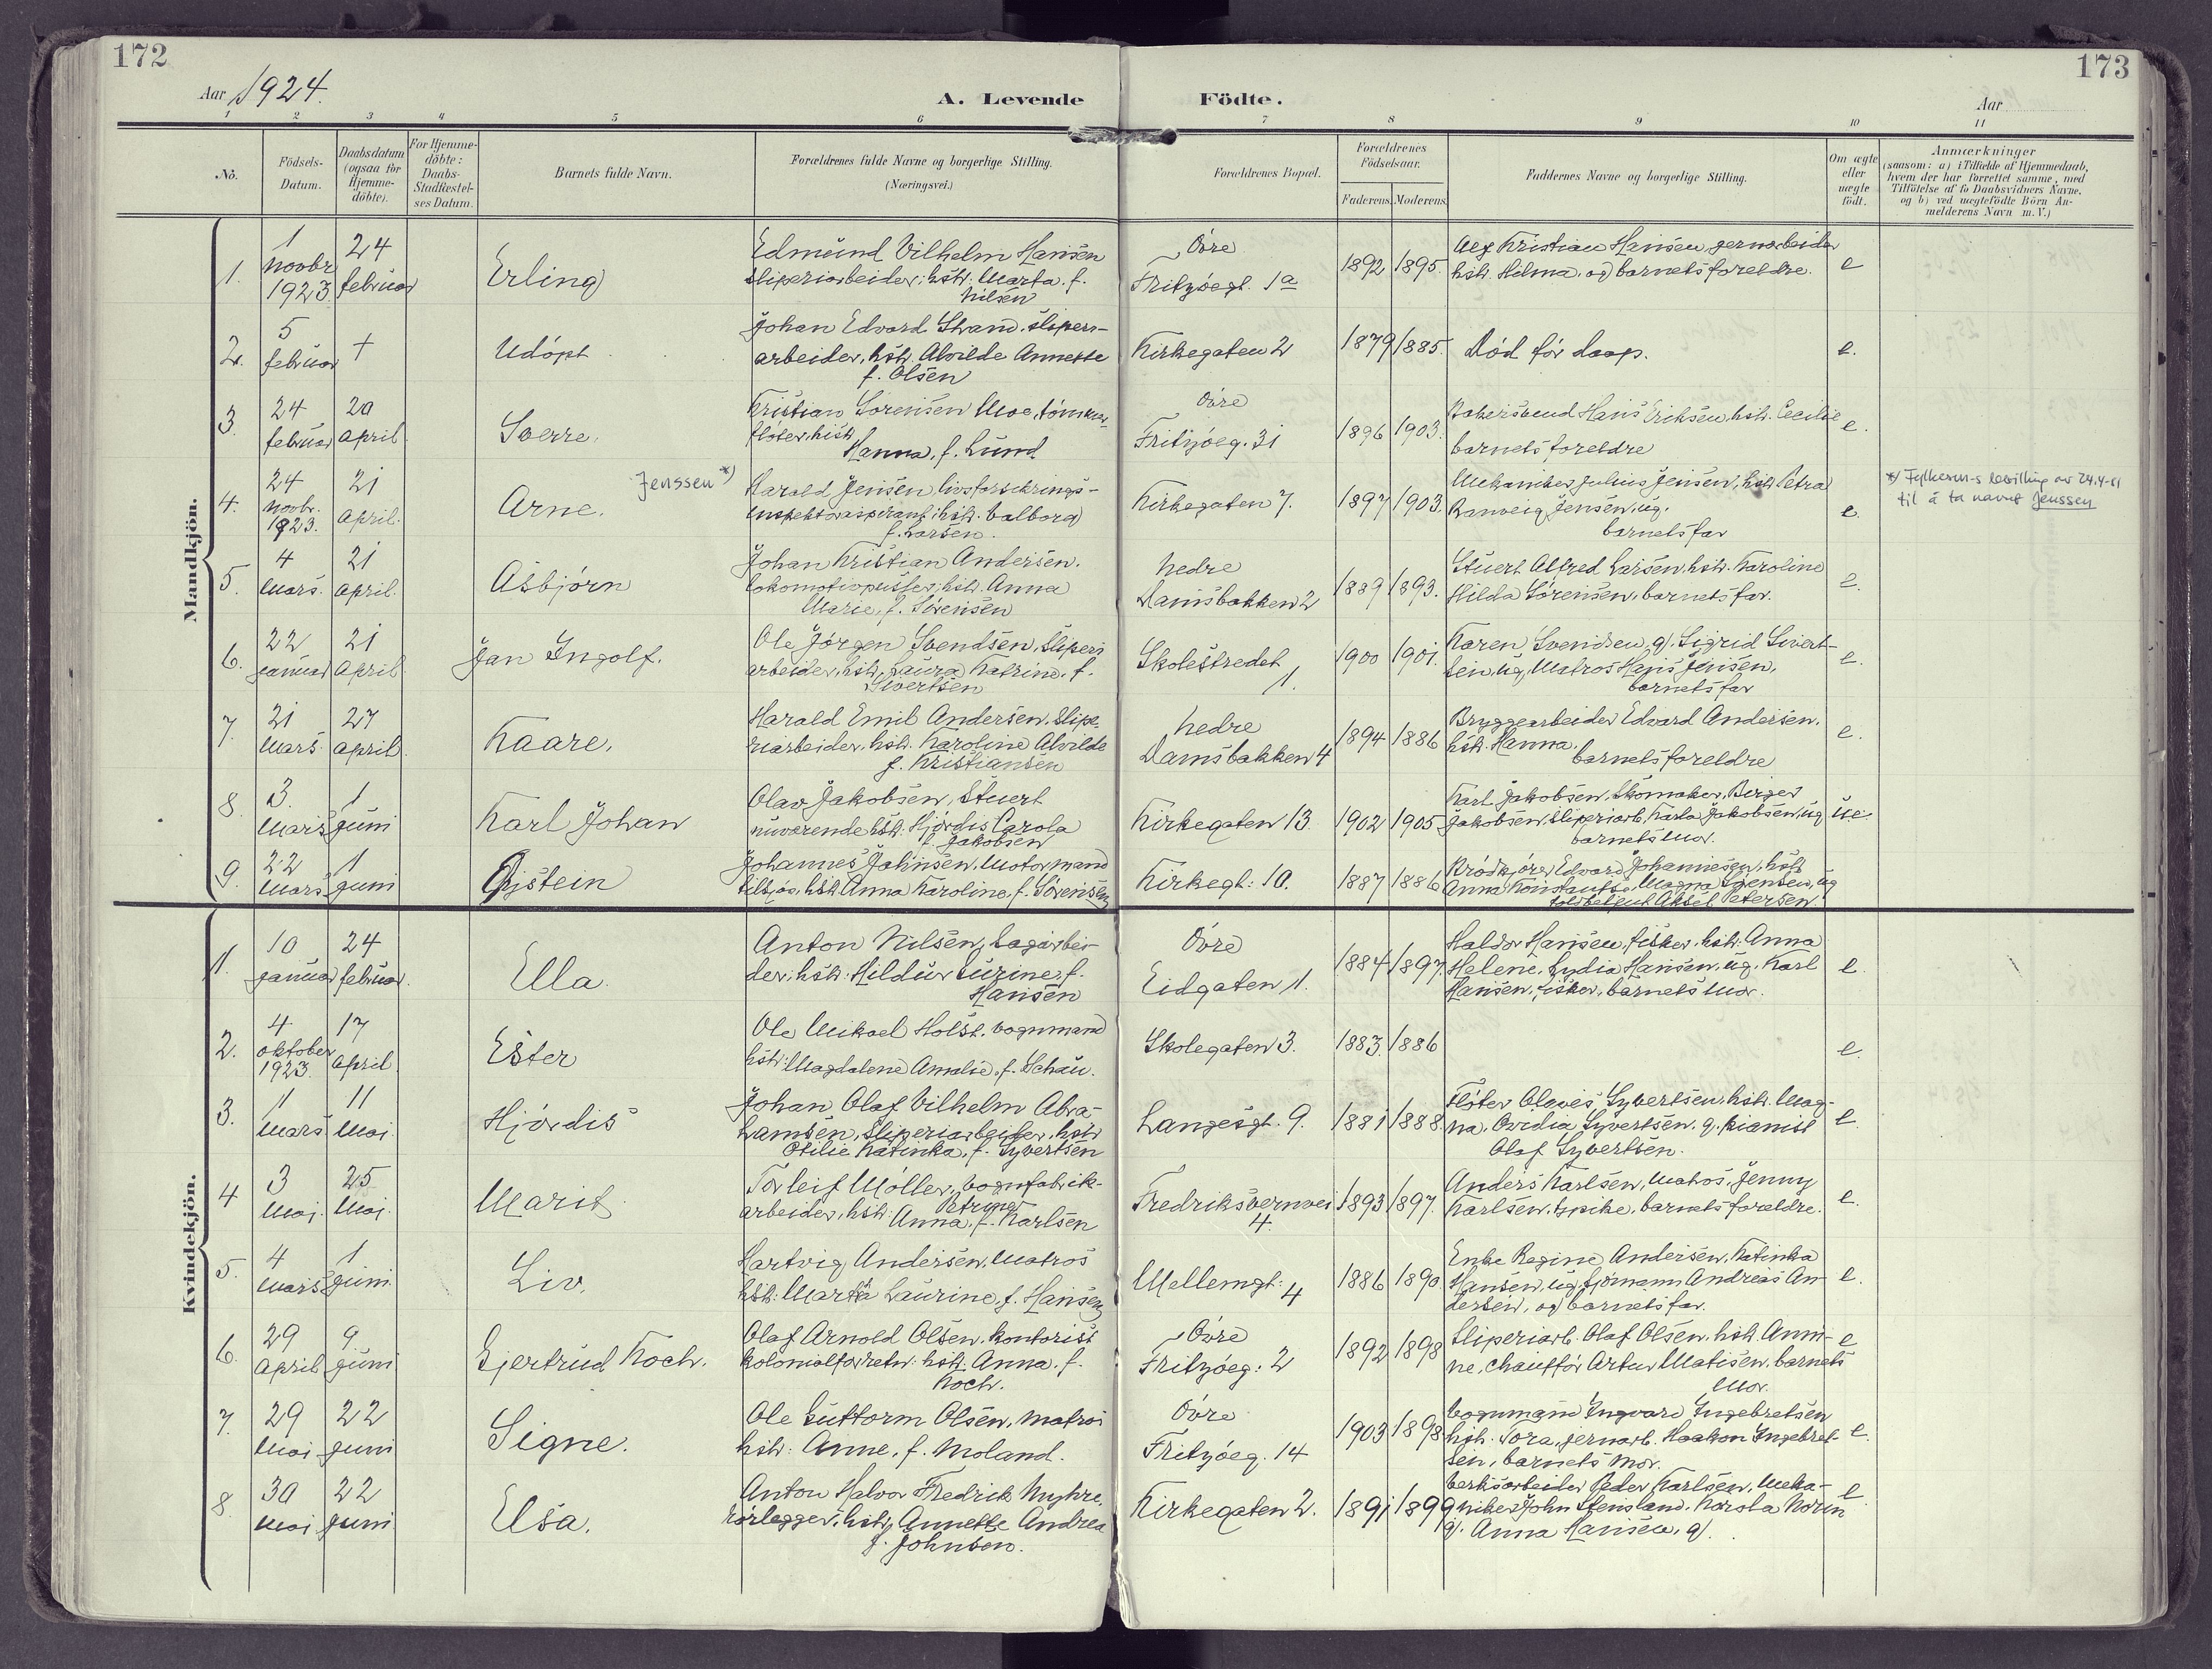 172
173
Aar 1924.
A. Levende Födte.
Aar
1 2 3 4 5 6 7 8 9 10 11
No.
Födsels-
Datum.
Daabsdatum
(ogsaa for
Hjemme-
döbte).
For Hjemme-
döbte:
Daabs-
Stadfæstel-
ses Datum.
Barnets fulde Navn.
Forældrenes fulde Navne og borgerlige Stilling.
(Næringsvei.)
Forældrenes Bopæl.
Forældrenes
Födselsaar.
Faderens. Moderens.
Faddernes Navne og borgerlige Stilling.
Om ægte
eller
uægte
födt.
Anmærkninger
(saasom: a) i Tilfælde af Hjemmedaab,
hvem der har forrettet samme, med
Tilföielse af to Daabsvidners Navne,
og b) ved uægtefödte Börn An-
melderens Navn m. V.)
Mandkjön.
1.
1
novbr
1923
24
februar
Erling
Edmund Vilhelm Hansen
sliperiarbeider, hstr. Marta f.
Nilsen
Övre
Fritzöegt. 1a
1892 1895.
Alf Kristian Hansen, jernarbeider
hstr. Hilma, og barnets foreldre.
e
2.
5
februar
†
Udöpt
Johan Edvard Strand, sliperi-
arbeider, hstr. Alvilde Annette
f. Olsen
Kirkegaten 2
1879 1885.
Död för daap.
e.
3.
24
februar
20
april
Sverre.
Kristian Sorensen Moe, tömmer-
flöter, hstr.
Hanna, f. Lund
Övre
Fritzöeg. 31
1896 1903.
Bakersvend Hans Eriksen, hstr. Cecilie
barnets foreldre
e.
4.
24
novbr.
1923.
21
april.
Jenssen *)
Arne.
Harald Jensen, livsforsikrings-
inspektöraspirant, hstr. Valborg
f. Larsen.
Kirkegaten 7.
1897 1903.
Mekaniker Julius Jensen, hstr. Petra
Ranveig Jensen, ug.
barnets far
e.
*) Fylkesm-s bevilling av 24.4-61
til å ta navnet Jenssen
5.
4
Mars.
21
april.
Asbjörn
Johan Kristian Andersen,
lokomotivpusser, hstr. Anna
Marie, f. Sörensen
Nedre
Damsbakken 2
1889 1893.
Stuert Alfred Larsen, hstr. Karoline
Hilda Sörensen, barnets far.
e.
6.
22
januar
21
april
Jan Ingolf.
Ole Jörgen Svendsen, sliperi
arbeider, hstr. Laura Katrine, f.
Sivertsen
Skolestredet
1.
1900 1901.
Karen Svendsen, g. Sigrid Sivert-
sen, ug, Matros Hans Jensen,
barnets far
e.
7.
21
Mars
27
april
Kaare.
Harald Emil Andersen, slipe-
riarbeider, hstr. Karoline Alvilde
f. Kristiansen
Nedre
Damsbakken 4
1894 1886
Bryggearbeider Edvard Andersen,
hstr. Hanna.
barnets foreldre
e.
8.
3.
Mars
1
juni
Karl Johan
Olav Jakobsen, Stuert
nuværende hstr. Hjördis Carola
f. Jakobsen
Kirkegaten 13.
1902 1905
Karl Jakobsen, Skomaker, Birger
Jakobsen, sliperiarb. Karla Jakobsen, ug
barnets mor.
u.e.
9.
22
Mars
1
juni
Öistein
Johannes Johnsen, Motormand
tilsjös, hstr. Anna Karoline, f. Sörensen
Kirkegt. 10.
1887 1886
Brödkjörer Edvard Johannessen, hstr
Anna Konstanse, Magna Sörensen, ug
Aksel Petersen
Kvindekjön.
1.
10
januar
24
februar.
Ella.
Anton Nilsen, Lagarbei-
der, hstr. Hildur Lurine, f.
Hansen
Övre
Eidgaten 1.
1884 1897.
Haldor Hansen, fisker, hstr. Anna
Helene, Lydia Hansen, ug. Karl
Hansen, fisker, barnets mor.
e.
2.
4
oktober
1923.
17
april
Ester
Ole Mikael Holst, vognmand
hstr. Magdalene Amalie, f. Schau.
Skolegaten 3.
1883. 1886
e.
3.
11
Mars
11
Mai
Hjördis
Johan Olaf Vilhelm Abra-
hamsen, sliperiarbeider, hstr
Otilie Katinka, f. Syvertsen
Langesgt. 9.
1881 1888
Flöter Olaves Syvertsen, hstr. Mag-
na, Ovidia Syvertsen, g. pianist
Olaf Syvertsen.
e.
4
3
Mai.
25
Mai.
Marit
Torleif Möller, vognfabrik-
arbeider, hstr. Anna Petrine, f. Karlsen
Fredriksvernvei
4.
1893 1897.
Anders Karlsen, Matros, Jenny
Karlsen, spike, barnets foreldre.
e.
5.
4
Mars
1
juni
Liv.
Hartvig Andersen, Matros
hstr. Marta Laurine, f. Hansen
Mellemgt. 4
1886 1890.
Enke Regine Andersen, Katinka
Hansen, ug, sjömann Andreas An-
dersen, og barnets far.
e.
6.
29
april
9.
juni
Gjertrud Koch.
Olaf Arnold Olsen, kontorist
kolonialforretn. hstr. Anna, f.
Koch.
Övre
Fritzöeg. 2
1892 1898
Sliperiarb. Olaf Olsen, hstr. Anni-
ne, chaufför Artur Matisen, barnets
Mor.
e
7.
29
Mai
22
juni
Signe.
Ole Guttorm Olsen, matros
hstr. Anne, f. Moland.
Övre
Fritzöeg. 14
1903 1898
Vognmand Ingvard Ingebretsen
hstr. Tora, jernarb. Haakon Ingebret-
sen, barnets mor.
e.
8.
30
Mai
22
juni
Elsa.
Anton Halvor Fredrik Myhre,
rörlegger, hstr. Annette Andrea
f. Johnsen.
Kirkegaten 2.
1891 1899
Verksarbeider Peder Karlsen, Meka-
niker John Stensland, Karola Norin
g. Anna Hansen, g.
e